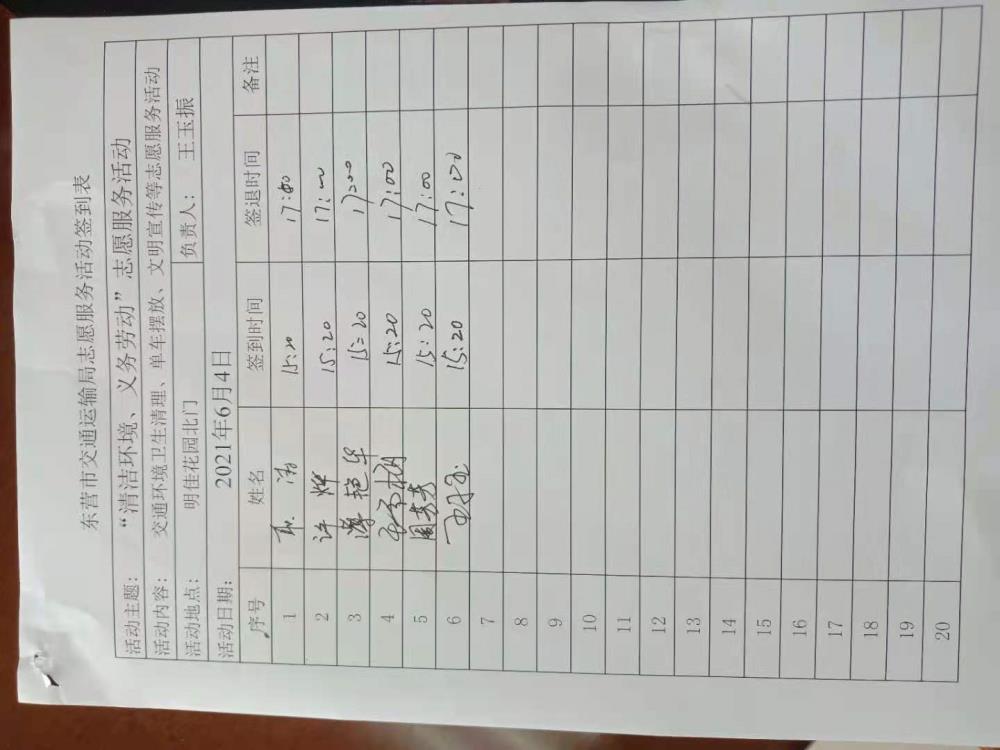 东营市交通运输局志愿服务活动签到表
活动主题： “清洁环境、义务劳动”志愿服务活动
活动内容： 交通环境卫生清理、单车摆放、文明宣传等志愿服务活动
活动地点： 明佳花园北门 负责人： 王玉振
活动日期： 2021年6月4日
序号 姓名 签到时间 签退时间 备注
1 15:20 17:00
2 许烨 15:20 17:00
3 艳华 15:20 17:00
4 15:20 17:00
5 周芳芳 15:20 17:00
6 15:20 17:00
7
8
9
10
11
12
13
14
15
16
17
18
19
20